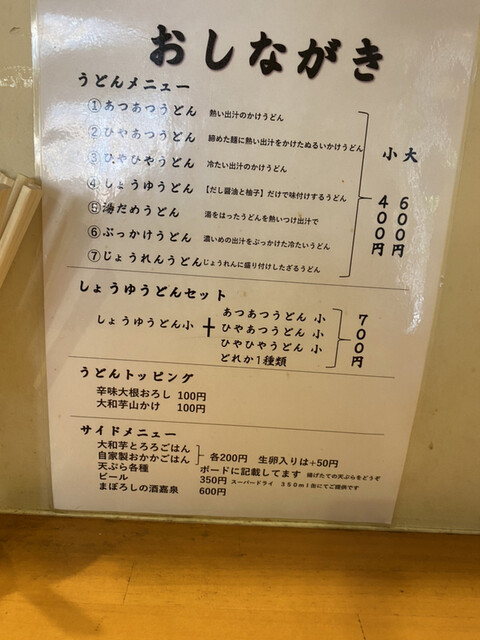 おしながき
うどんメニュー
小 大
①あつあつうどん 熱い出汁のかけうどん
②ひやあつうどん 締めた麺に熱い出汁をかけたぬるいかけうどん
③ひやひやうどん 冷たい出汁のかけうどん
④しょうゆうどん 【だし醤油と柚子】だけで味付けするうどん
⑤湯だめうどん 湯をはったうどんを熱いつけ出汁で
⑥ぶっかけうどん 濃いめの出汁をぶっかけた冷たいうどん
⑦じょうれんうどん じょうれんに盛り付けしたざるうどん
400円 600円
しょうゆうどんセット
しょうゆうどん小 + あつあつうどん 小
ひやあつうどん 小
ひやひやうどん 小
どれか1種類
700円
うどんトッピング
辛味大根おろし 100円
大和芋山かけ 100円
サイドメニュー
大和芋とろろごはん
自家製おかかごはん 各200円 生卵入りは+50円
天ぷら各種 ボードに記載してます 揚げたての天ぷらをどうぞ
ビール 350円 スーパードライ 350ml缶にてご提供です
まぼろしの酒嘉泉 600円